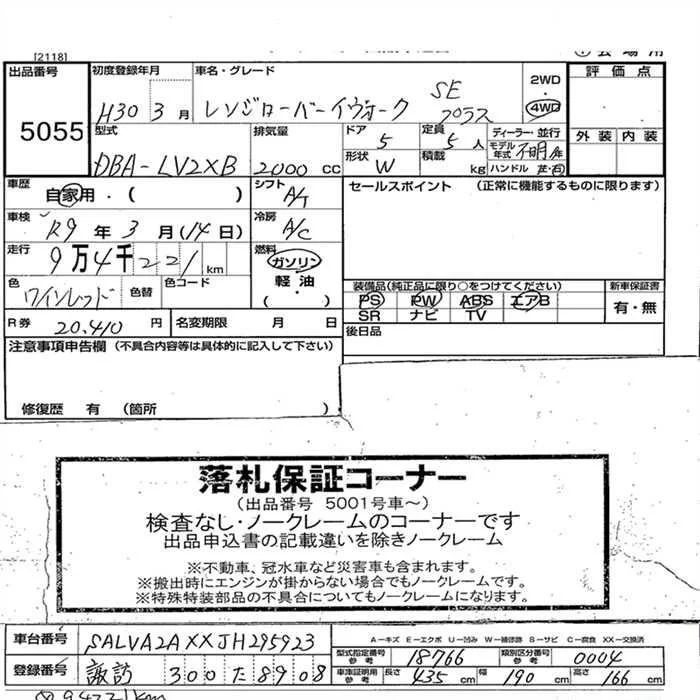 [2118]
出品番号 5055
初度登録年月 H30 3 月
車名・グレード レンジローバーイヴォーク SE プラス
2WD ・ 4WD
評価点
外装 内装
型式 DBA-LV2XB
排気量 2000 cc
ドア 5
定員 5 人
ディーラー・並行
モデル年式 不明 年
形状 W
積載 kg
ハンドル 左・右
車歴 自家用・( )
シフト A/T
セールスポイント (正常に機能するものに限ります)
車検 R9 年 3 月 (14 日)
冷房 A/C
走行 9万4千221 km
燃料 ガソリン
軽油
・( )
色 ワインレッド 色替 色コード
装備品(純正品に限り○をつけてください)
新車保証書
PS PW ABS エアB
有・無
SR ナビ TV
R券 20.410 円 名変期限 月 日
後日品
注意事項申告欄 (不具合内容等は具体的に記入して下さい)
修復歴 有 (箇所 )
落札保証コーナー
(出品番号 5001号車~)
検査なし・ノークレームのコーナーです
出品申込書の記載違いを除きノークレーム
※不動車、冠水車など災害車も含まれます。
※搬出時にエンジンが掛からない場合でもノークレームです。
※特殊特装部品の不具合についてもノークレームになります。
車台番号 SALVA2AXXJH295923
A-キズ E-エクボ U-凹み W-補修跡 S-サビ C-腐食 XX-交換済
型式指定番号 参考 18766 類別区分番号 参考 0004
登録番号 諏訪 300 た 8908
車庫証明用 参考 長さ 435 cm 幅 190 cm 高さ 166 cm